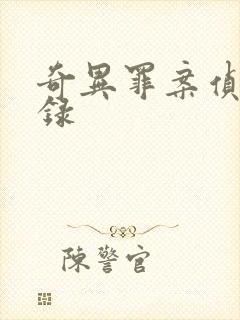 奇異罪案偵
錄
陳警官